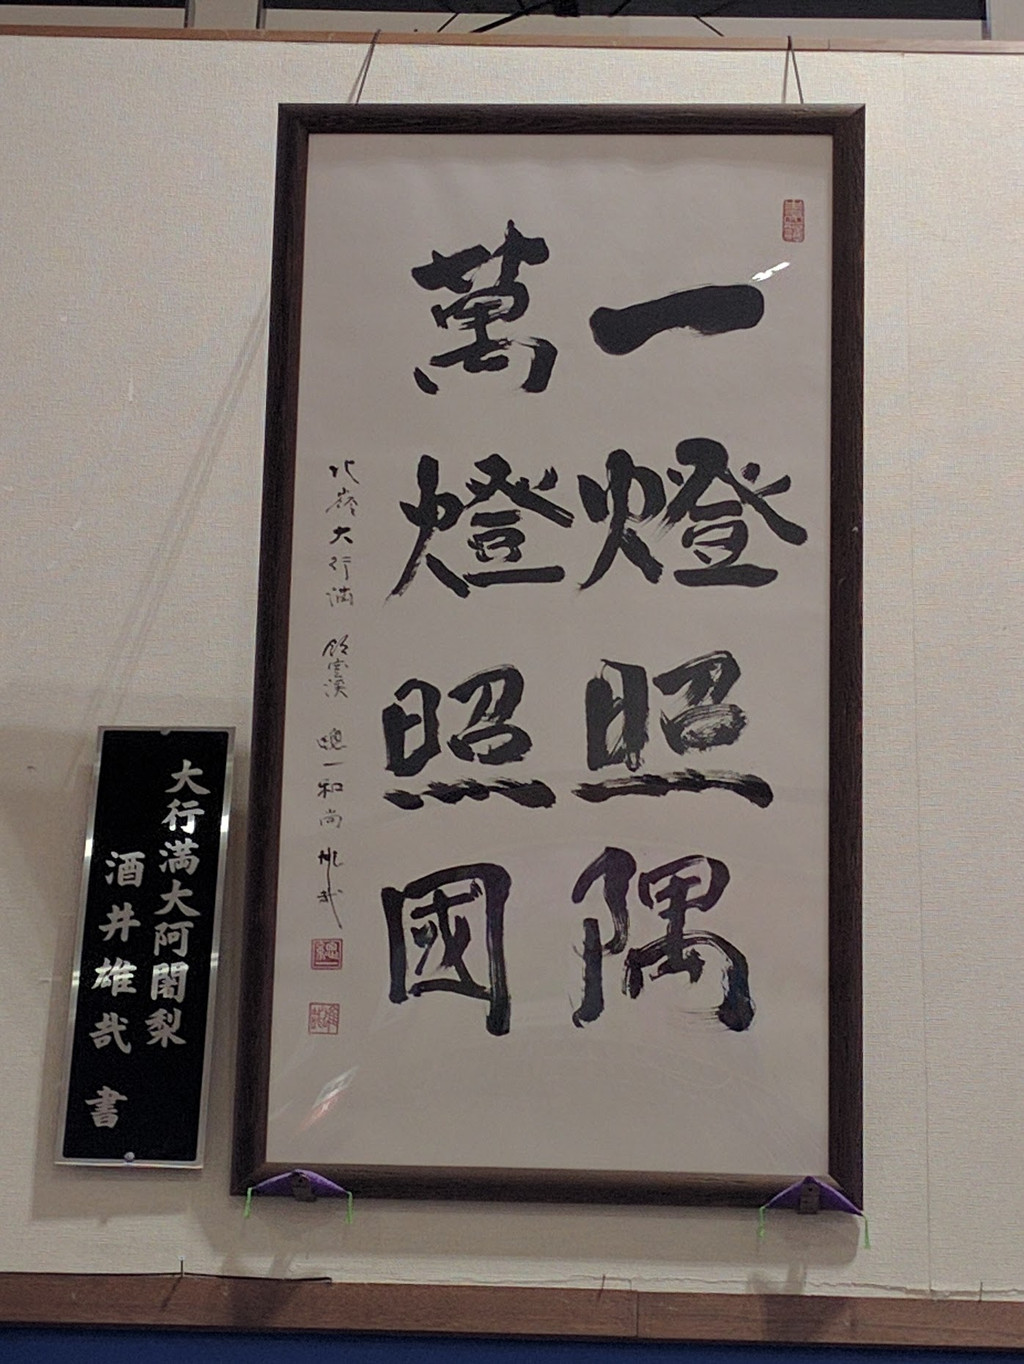 一燈照隅
萬燈照國
北嶺大行満 飯室溪 總一和尚 雄哉
大行満大阿闍梨
酒井雄哉 書